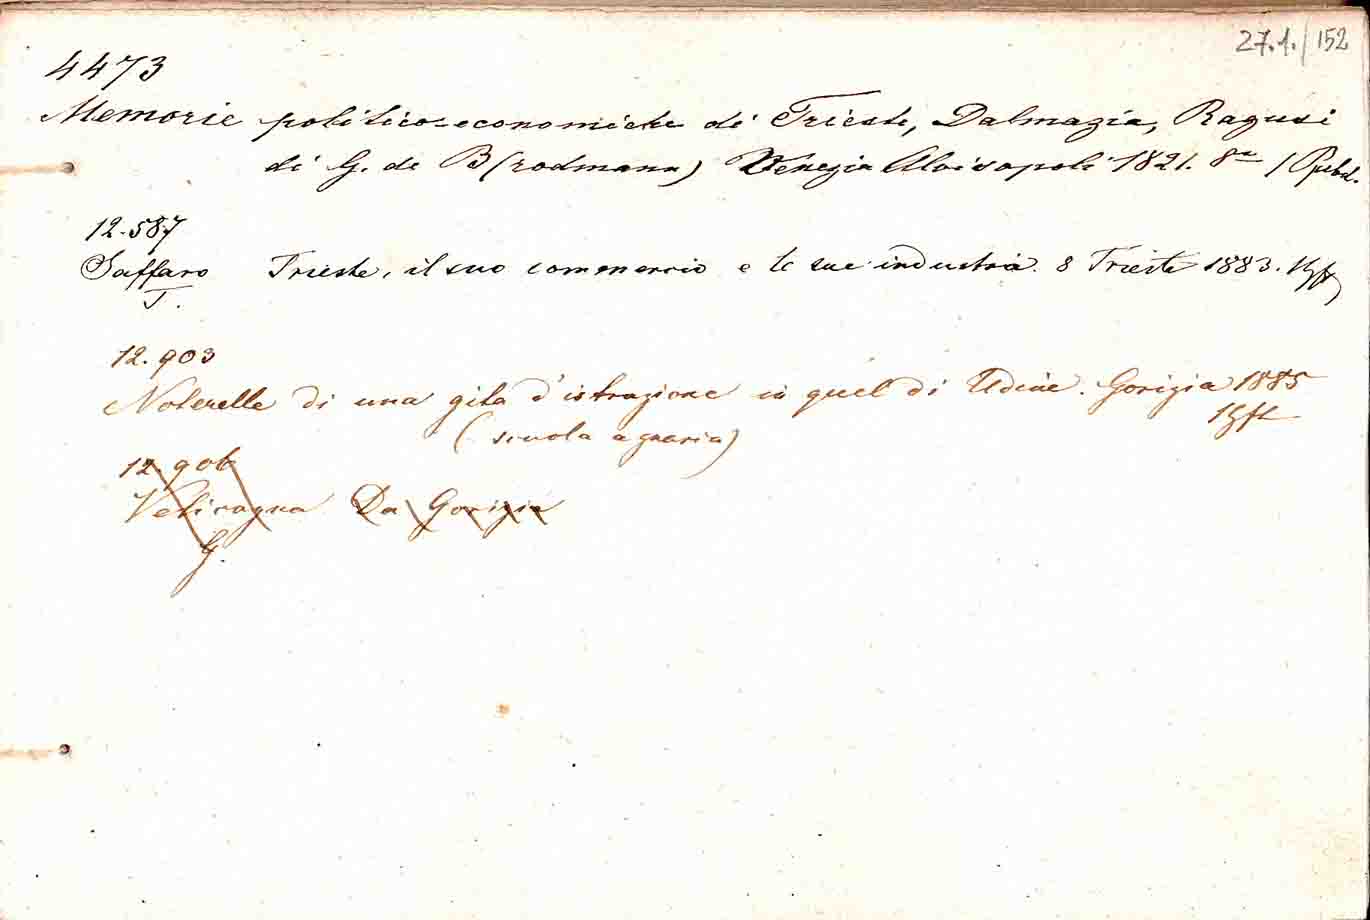 27.1./152
4473
Memorie politico-economiche di Trieste, Dalmazia, Ragusi
di G. de B(rodmann) Venezia Alvisopoli 1821. 8°
12.587
Saffaro Trieste, il suo commercio e le sue industria. 8 Trieste 1883. Hft
T.
12.903
Noterelle di una gita d'istruzione in quel di Udine. Gorizia 1885
Hft
(scuola agraria)
12.906
Velicogna Da Gorizia
G.